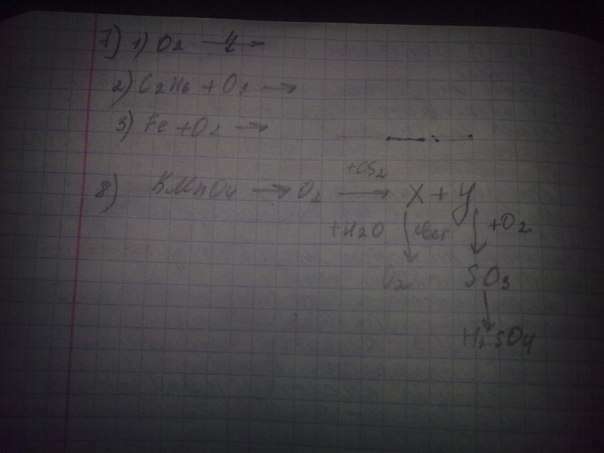 7) 1) O2 →
2) C2H6 + O2 →
3) Fe + O2 →
8) KMnO4 → O2 +CS2 → X + Y
+H2O свет +O2
O2 SO3
H2SO4